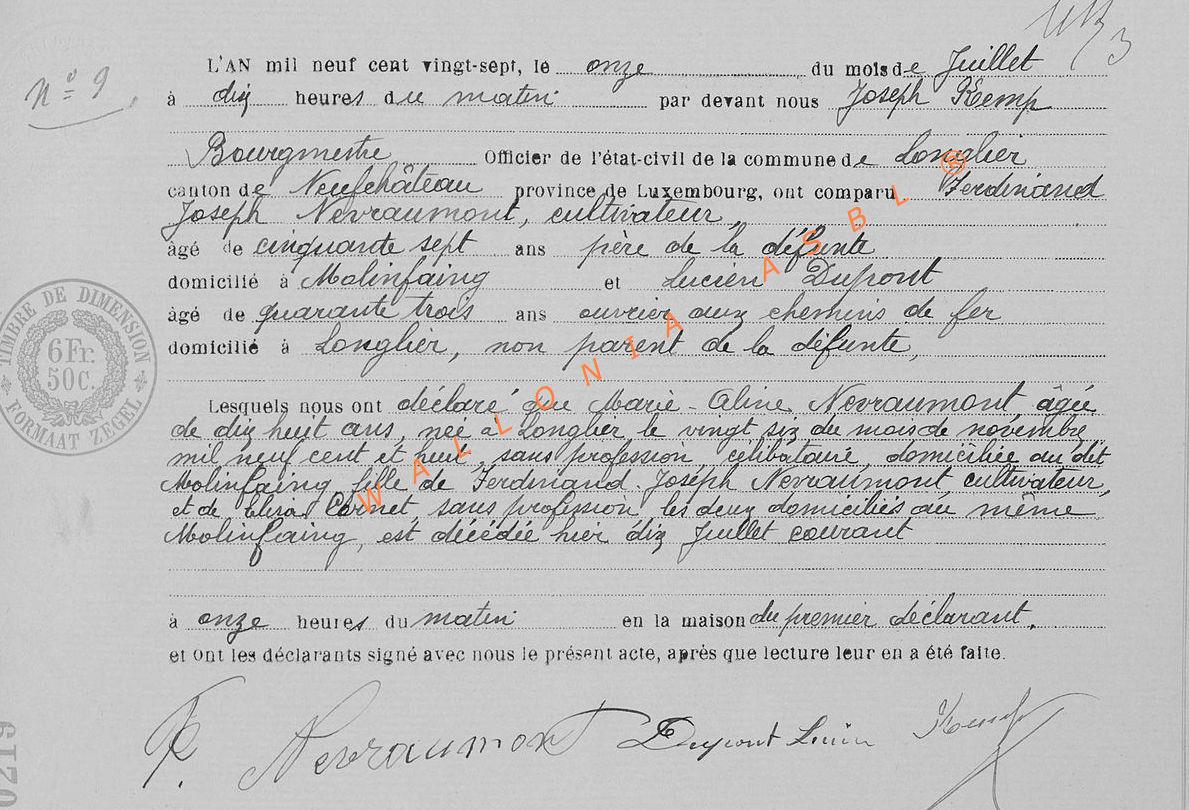 Nº 9
3
L'AN mil neuf cent vingt-sept, le onze du mois de Juillet
à dix heures du matin par devant nous Joseph Kemp
Bourgmestre Officier de l'état-civil de la commune de Longlier
canton de Neufchâteau province de Luxembourg, ont comparu Ferdinand
Joseph Nevraumont, cultivateur,
âgé de cinquante sept ans père de la défunte
domicilié à Molinfaing et Lucien Dupont
âgé de quarante trois ans ouvrier aux chemins de fer
domicilié à Longlier, non parent de la défunte,
Lesquels nous ont déclaré que Marie-Aline Nevraumont, âgée
de dix huit ans, née à Longlier le vingt six du mois de novembre
mil neuf cent et huit, sans profession, célibataire, domiciliée au dit
Molinfaing fille de Ferdinand Joseph Nevraumont, cultivateur,
et de Cornet, sans profession les deux domiciliés au même
Molinfaing, est décédée hier dix Juillet courant
à onze heures du matin en la maison du premier déclarant.
et ont les déclarants signé avec nous le présent acte, après que lecture leur en a été faite.
F. Nevraumont Dupont Lucien Kemp
TIMBRE DE DIMENSION
6 Fr.
50 C.
FORMAAT ZEGEL
0219
WALLONIA ASBL ®